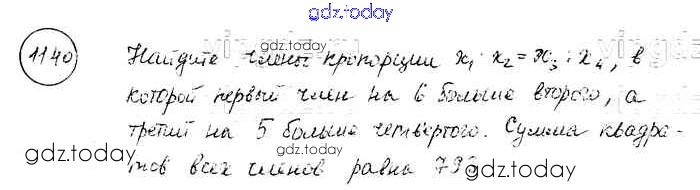 gdz.today
1140 Найдите члены пропорции x₁ : x₂ = x₃ : x₄, в
которой первый член на 6 больше второго, а
третий на 5 больше четвёртого. Сумма квадра-
тов всех членов равна 793
gdz.today
gdz.today
gdz.today
gdz.today